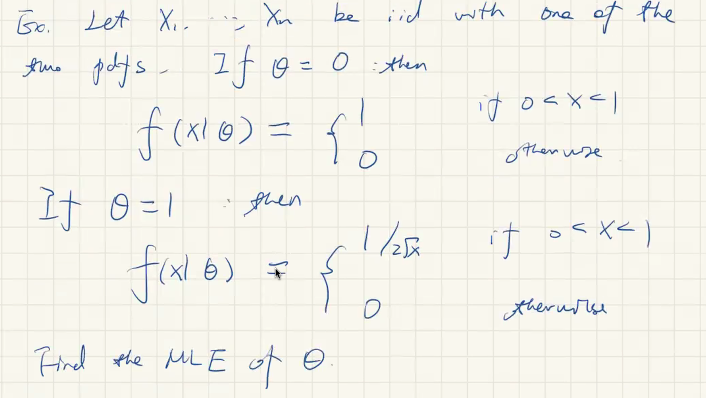 Ex. Let X₁, ..., Xn be iid with one of the
two pdfs. If θ = 0 then
f(x|θ) = { 1 if 0 < x < 1
0 otherwise
If θ = 1 then
f(x|θ) = { 1/2√x if 0 < x < 1
0 otherwise
Find the MLE of θ.